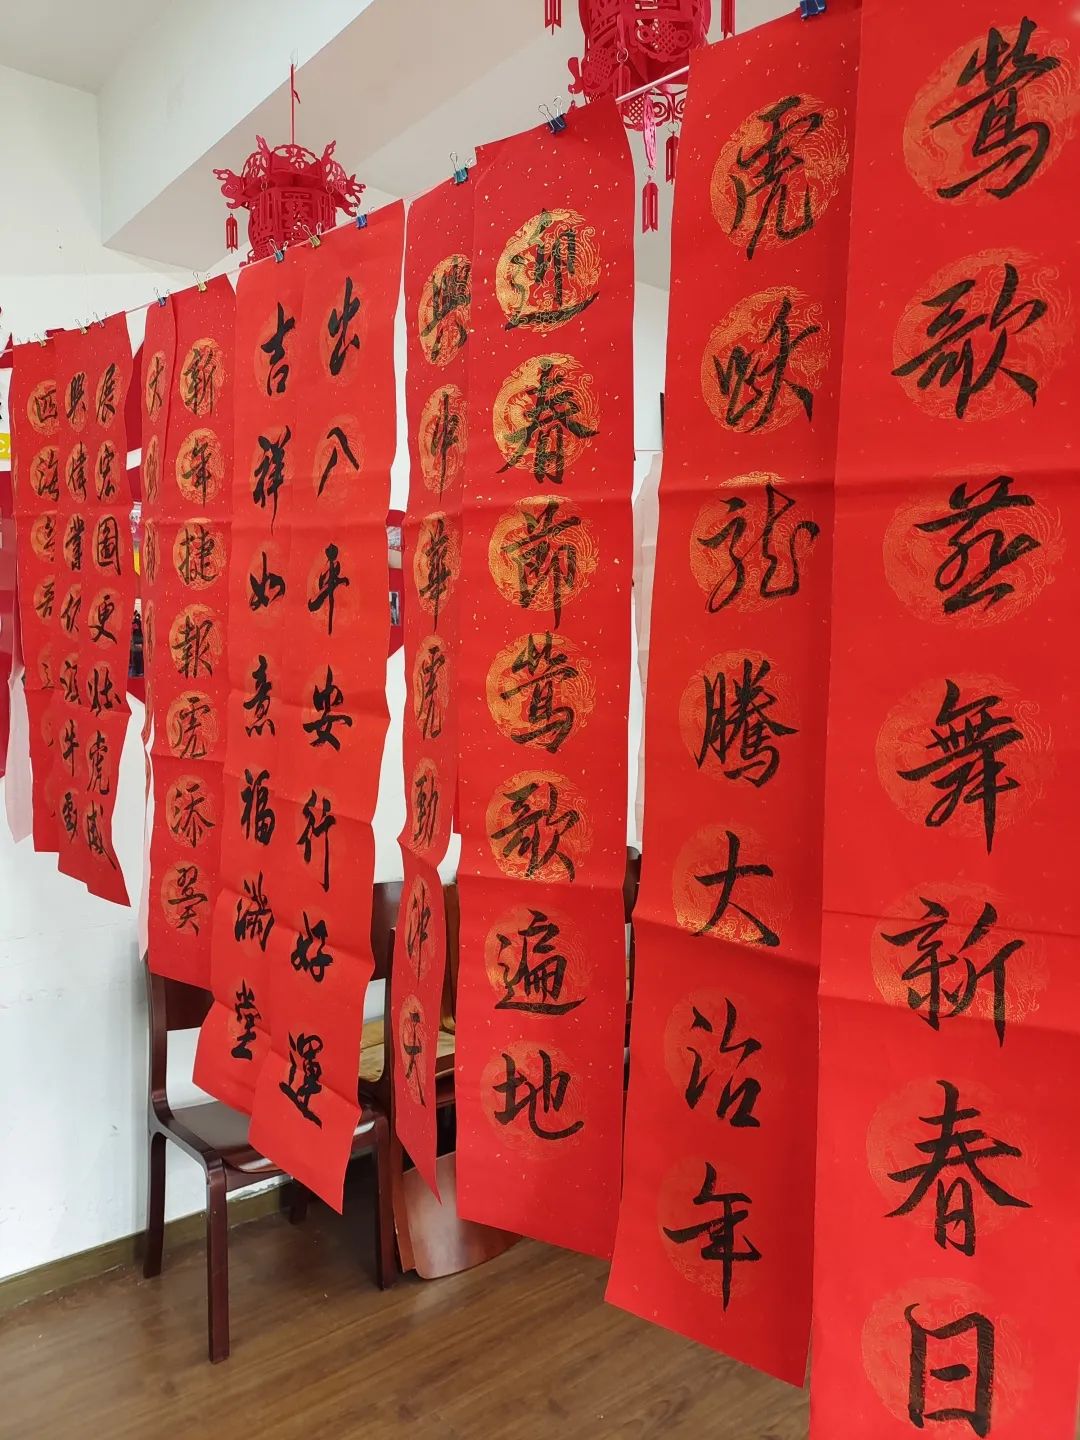 莺歌燕舞新春日
虎跃龍騰大治年
迎春節莺歌遍地
興中華虎勁沖天
出入平安行好運
吉祥如意福滿堂
新年捷報虎添翼
大
展宏圖更壯虎威
興偉業仍須牛勁